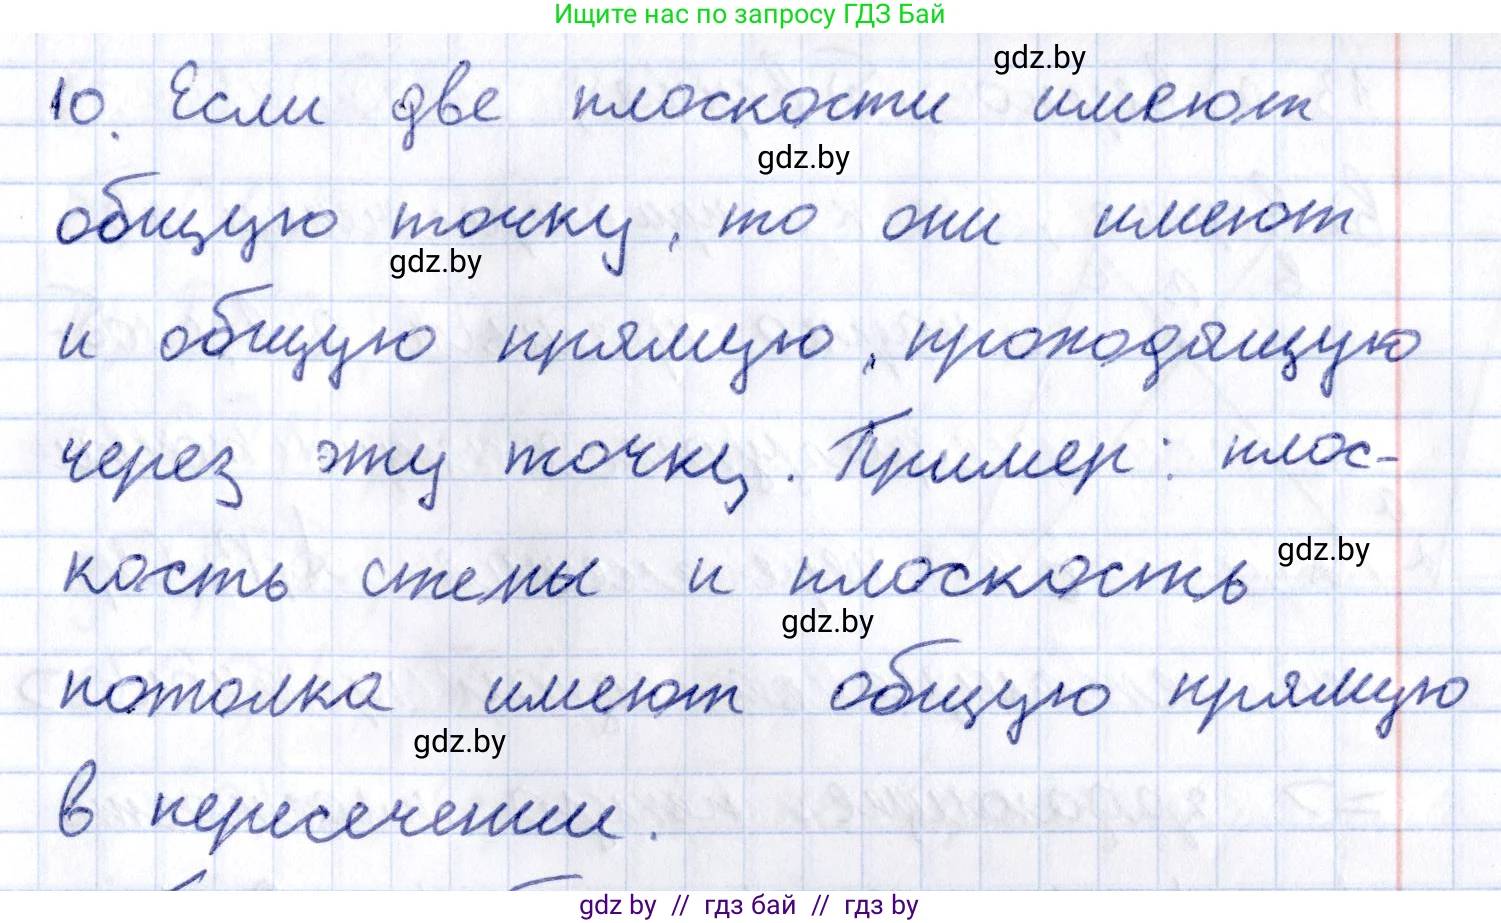 Ищите нас по запросу ГДЗ Бай
gdz.by
10. Если две плоскости имеют
gdz.by
общую точку, то они имеют
gdz.by
и общую прямую, проходящую
через эту точку. Пример: плос-
gdz.by
кость стены и плоскость
gdz.by
потолка имеют общую прямую
gdz.by
в пересечении.
gdz.by // гдз бай // гдз by